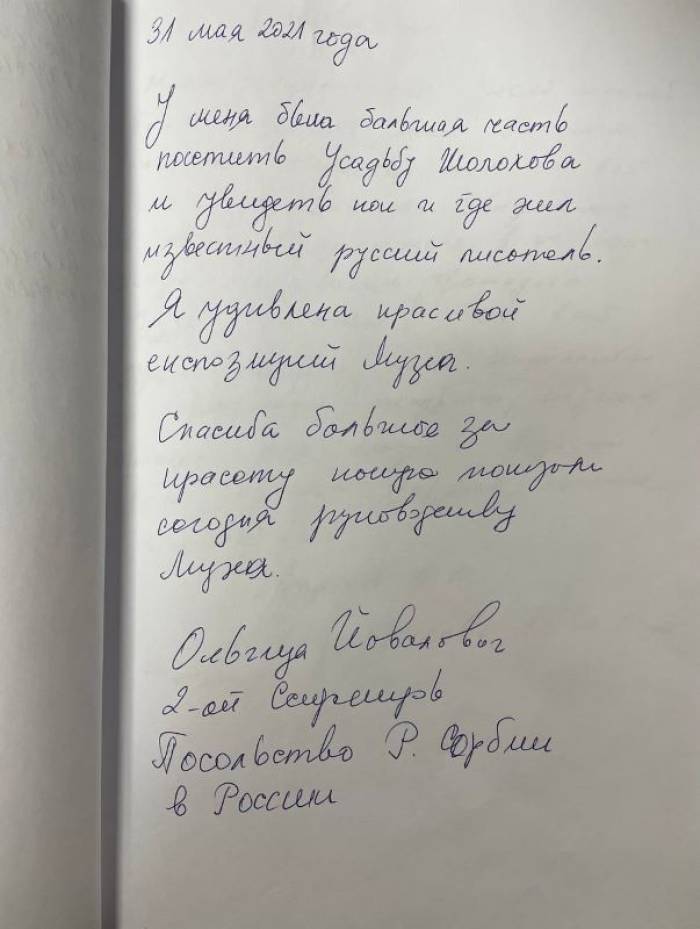 31 мая 2021 года
У меня была большая часть
посетить Усадьбу Шолохова
и увидеть как и где жил
известный русский писатель.
Я удивлена красивой
експозиций Музеа.
Спасиба большое за
красоту
сегодня
Музеа.
Ольгица Йованович
2-ой Секретарь
Посольство Р. Сербии
в России